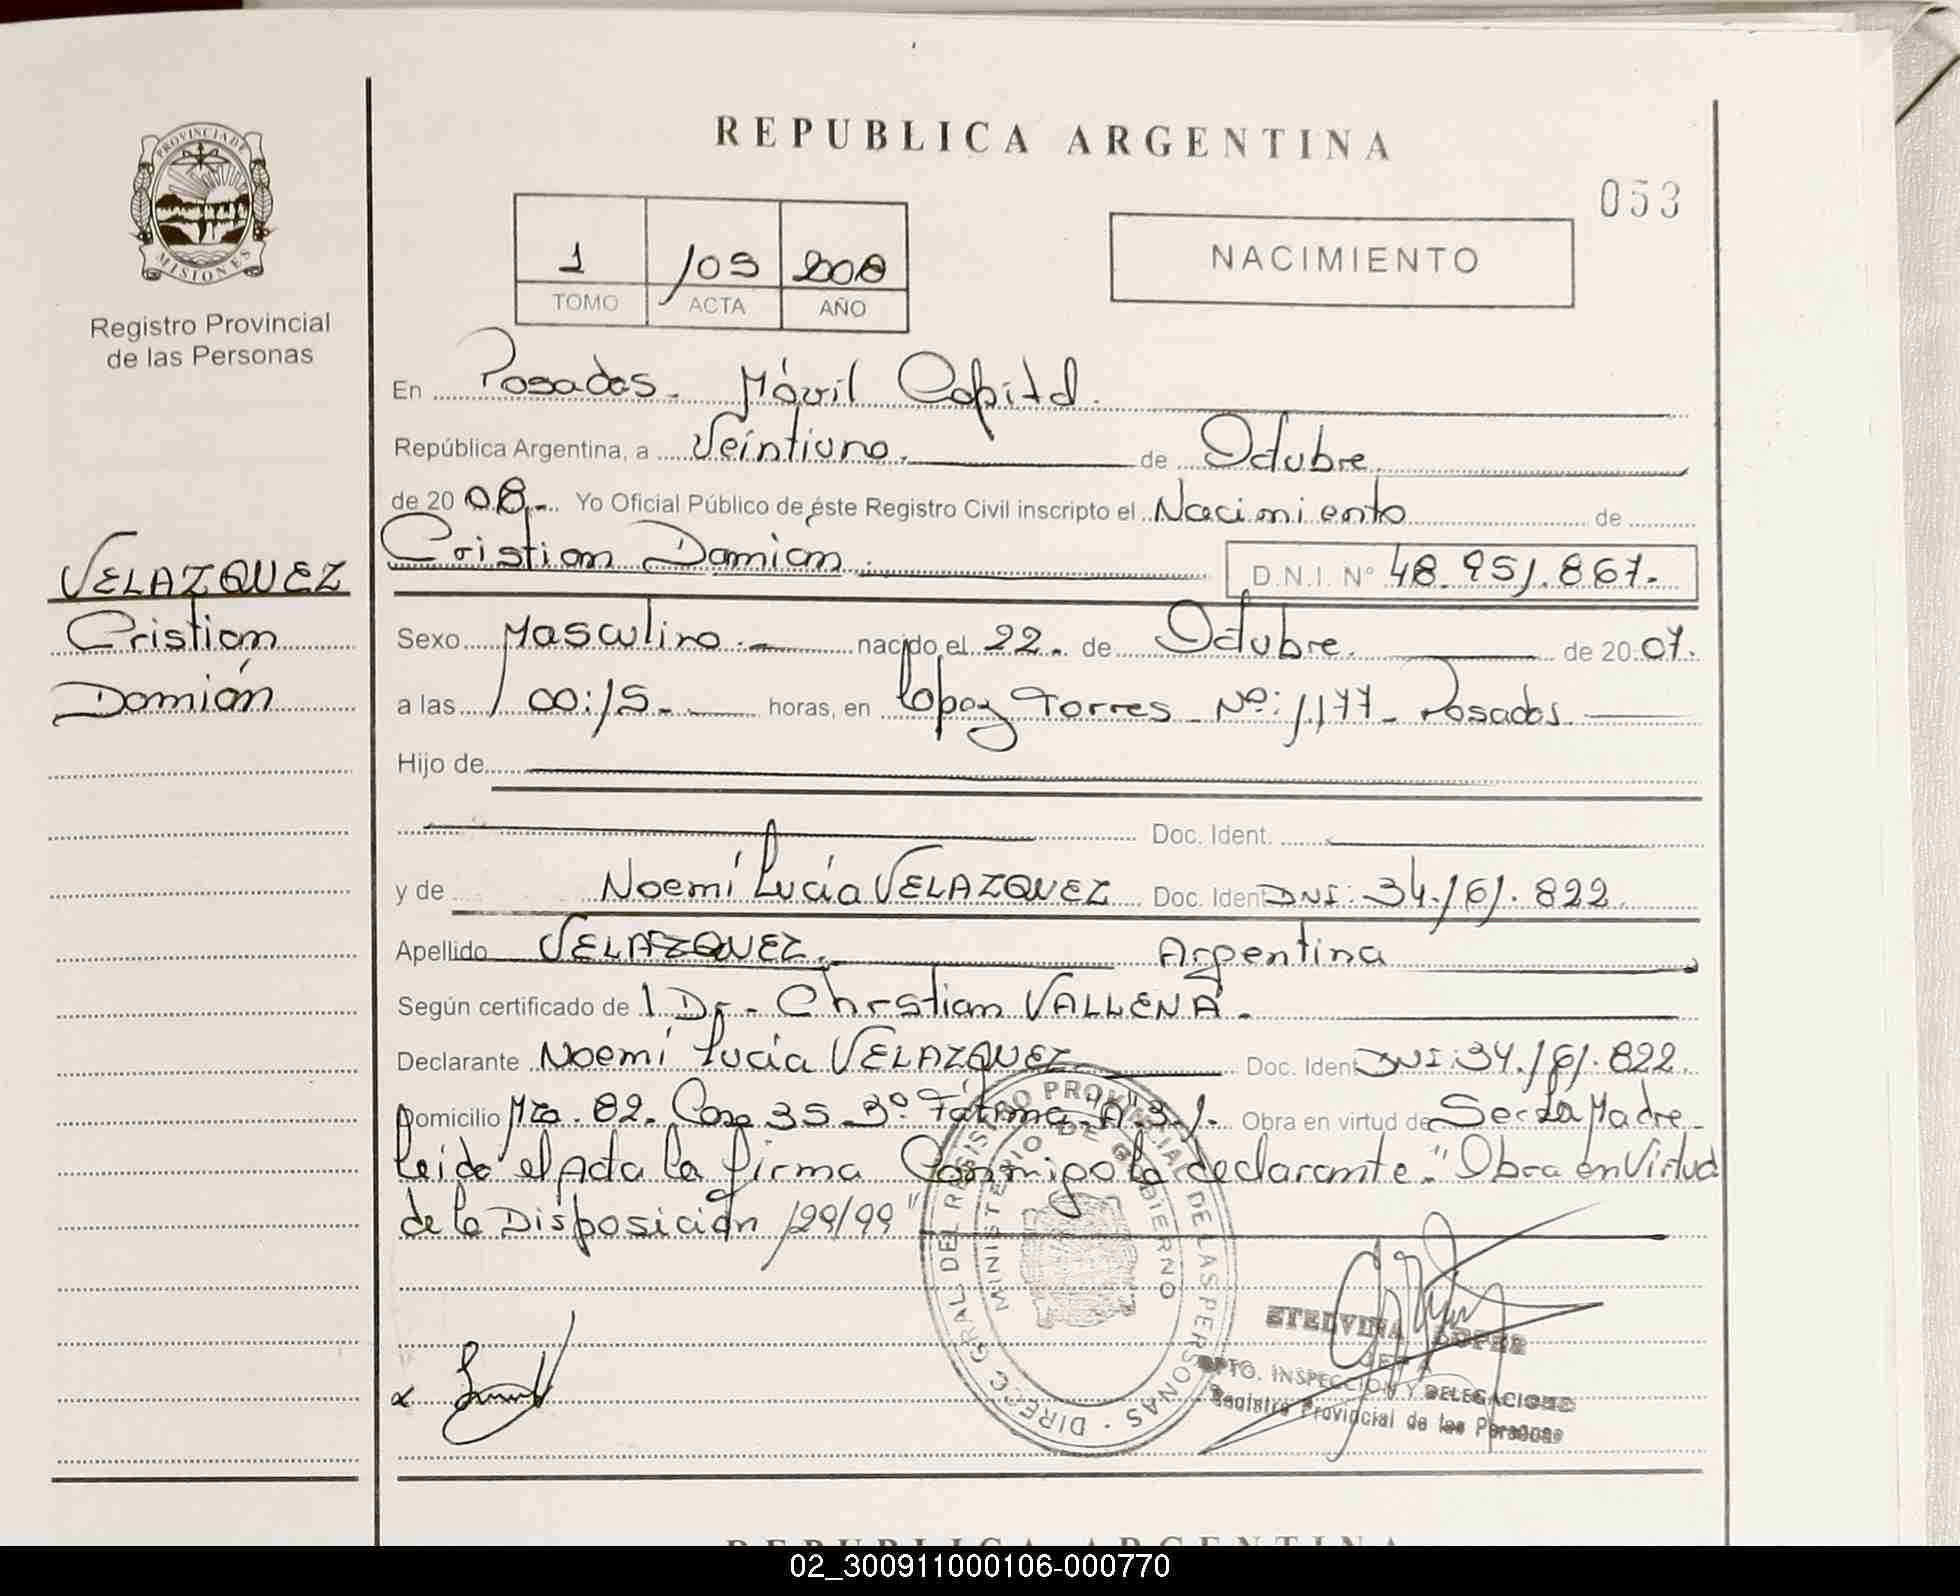 PROVINCIA DE
MISIONES
Registro Provincial
de las Personas
VELAZQUEZ
Cristian
Damián
REPUBLICA ARGENTINA
053
1 105 2008
TOMO ACTA AÑO
NACIMIENTO
En Posadas. Móvil Capital.
República Argentina, a Veintiuno. de Octubre.
de 20 08.- Yo Oficial Público de éste Registro Civil inscripto el Nacimiento de
Cristian Damian. D.N.I. Nº 48.951.867.-
Sexo Masculino.- nacido el 22. de Octubre. de 20 07.
a las 00:15.- horas, en Lopez Torres Nº: 1177- Posadas.
Hijo de
Doc. Ident.
y de Noemí Lucía VELAZQUEZ Doc. Ident DNI: 34.161.822
Apellido VELAZQUEZ. Argentina
Según certificado de 1 Dr.- Chrstian VALLENA.-
Declarante Noemí Lucía VELAZQUEZ Doc. Ident DNI: 34.161.822.
Domicilio Mza. 82. Casa 35 3º. Fátima. "A" 3. Obra en virtud de Ser La Madre
Leido el Acta la firma Conmigo la declarante. "Obra en Virtud
de la Disposición 129/99"
DIRECC GRAL DEL REGISTRO PROVINCIAL DE LAS PERSONAS
MINISTERIO DE GOBIERNO
ETELVINA
JEFA
DPTO. INSPECCION Y DELEGACIONES
Registro Provincial de las Personas
REPUBLICA ARGENTINA
02_300911000106-000770